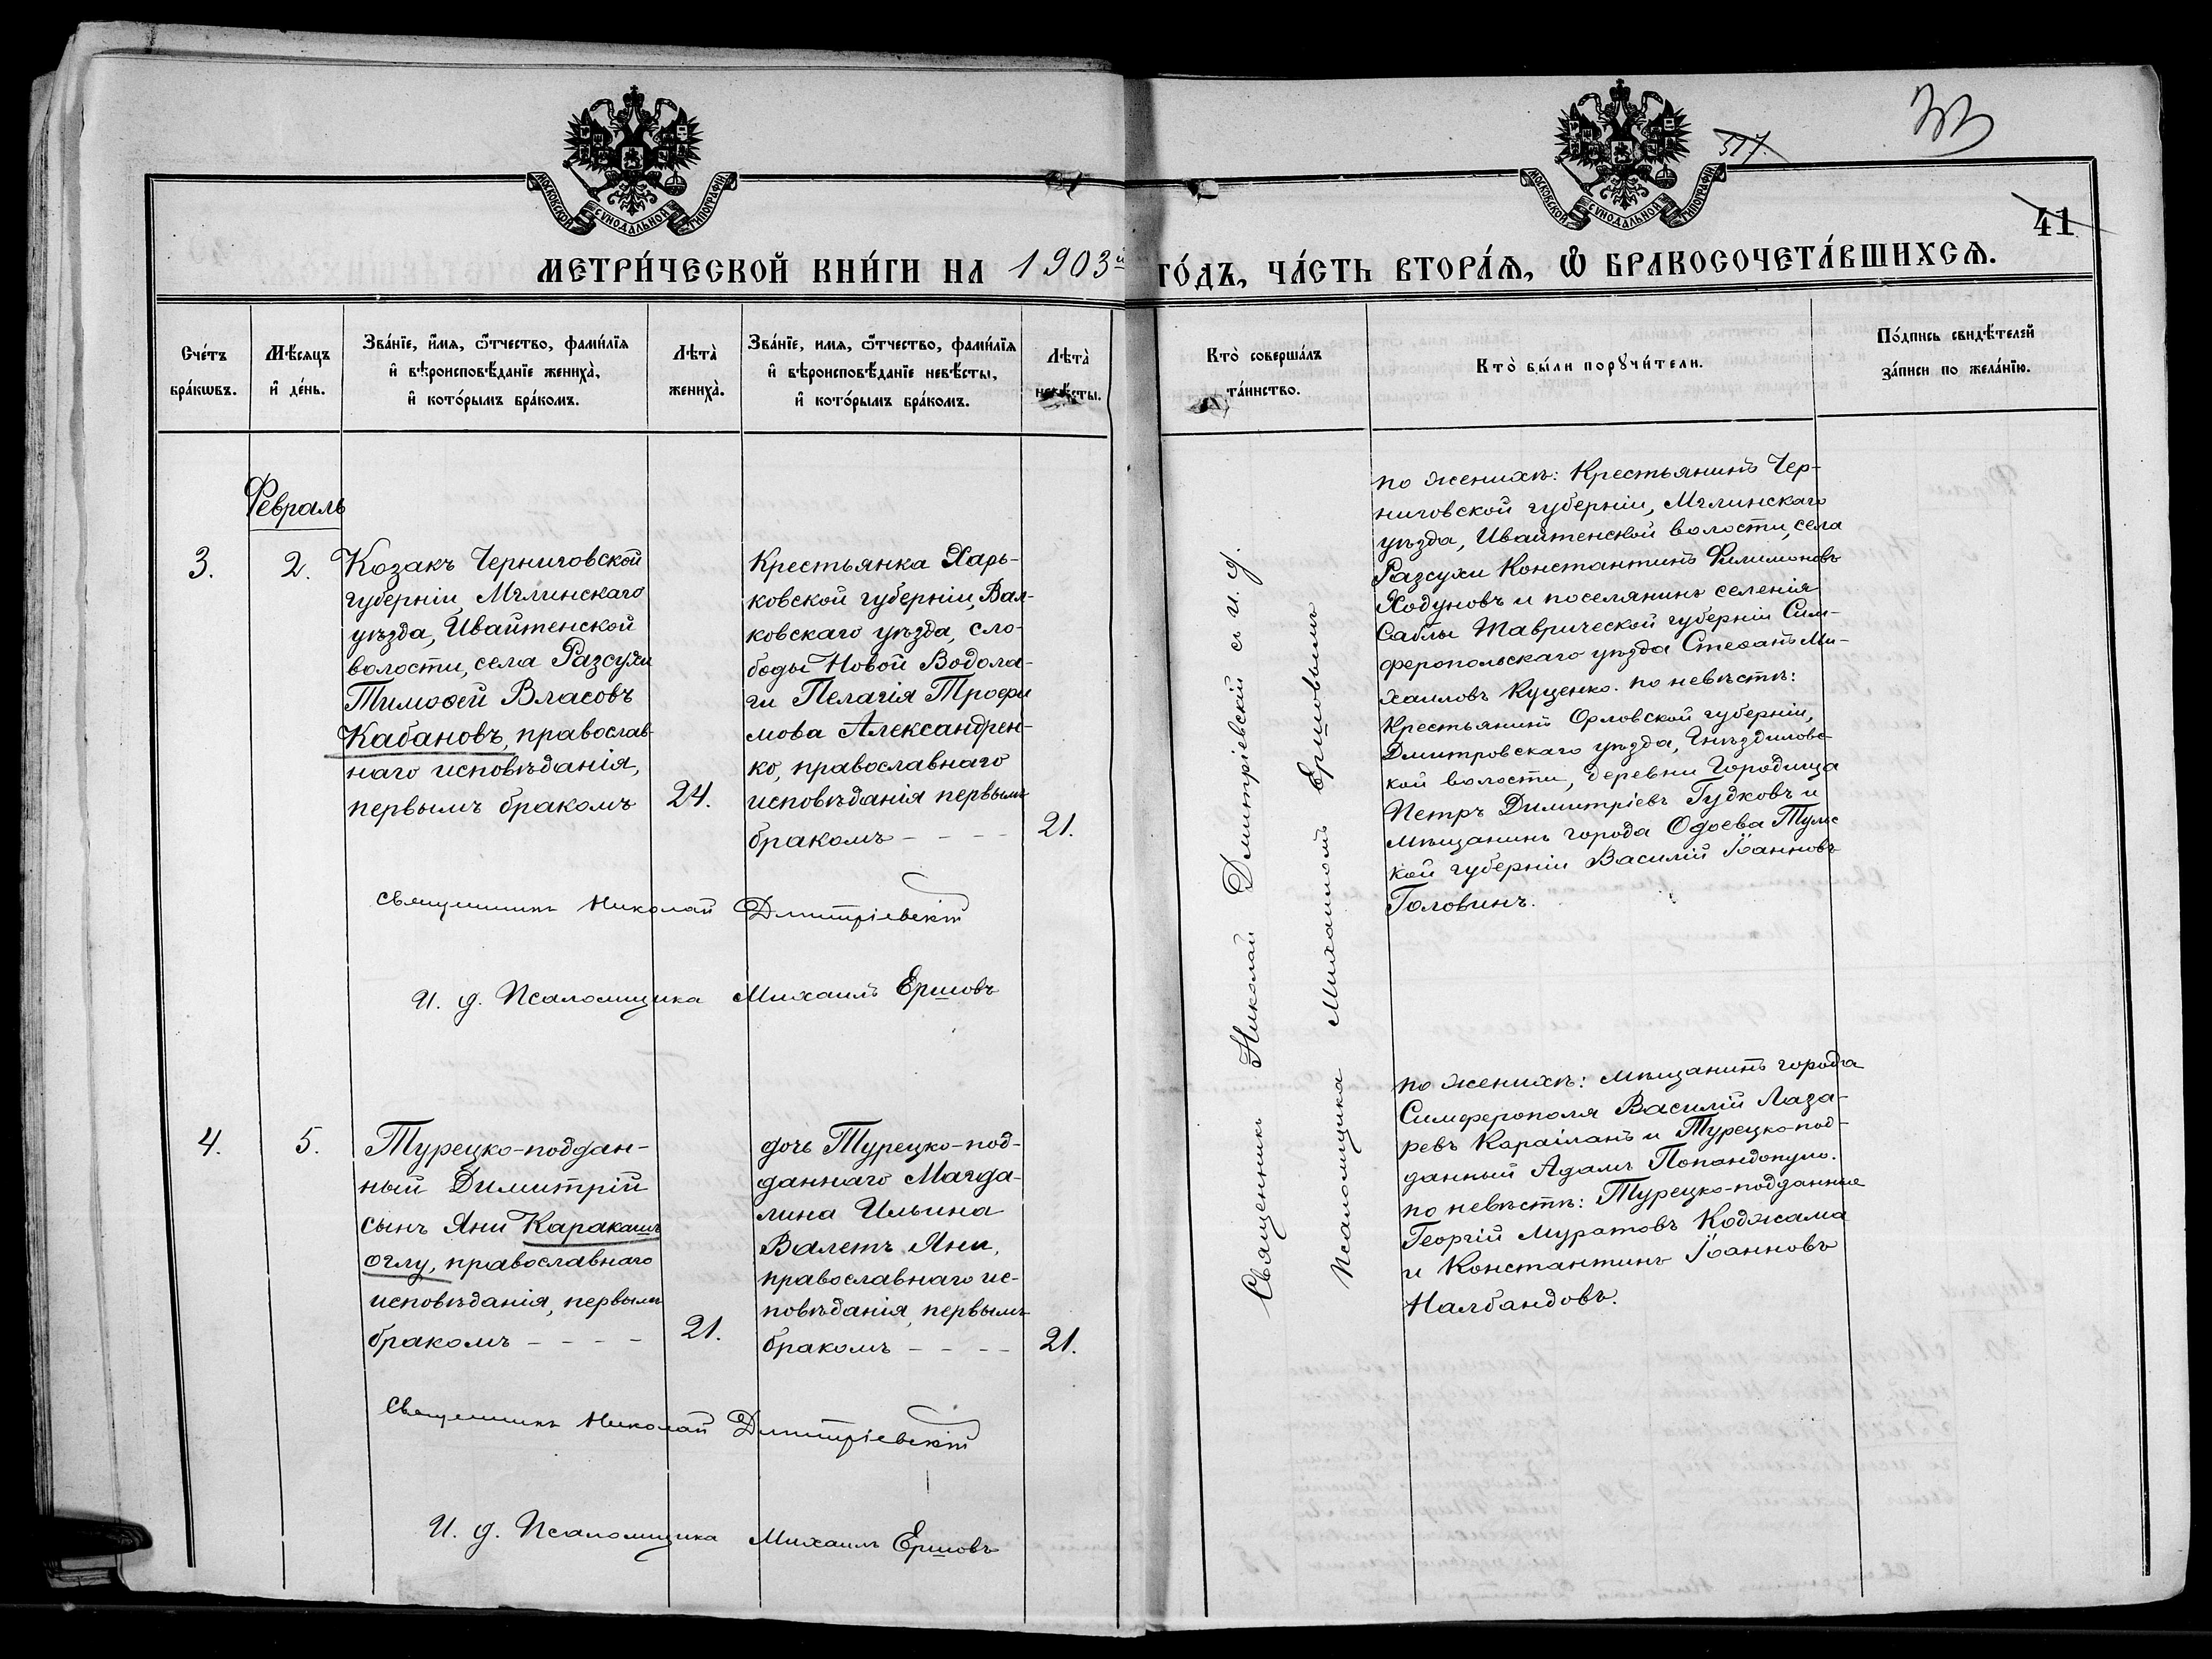 МОСКОВСКОЙ СѴНОДАЛЬНОЙ ТИПОГРАФІИ
МОСКОВСКОЙ СѴНОДАЛЬНОЙ ТИПОГРАФІИ
317.
33
41
МЕТРИ́ЧЕСКОЙ КНИ́ГИ НА 1903й ГО́ДЪ, ЧА́СТЬ ВТОРА́Ѧ, Ѽ БРАКОСОЧЕТА́ВШИХСѦ.
Счéтъ
бра́кѡвъ.
Мѣ́сяцъ
и҆ де́нь.
Зва́нїе, и҆́мя, ѻ҆́тчество, фами́лїя
и҆ вѣроисповѣ́данїе жениха̀,
и҆ кото́рымъ бра́комъ.
Лѣта̀
жениха̀.
Зва́нїе, имя, ѻ҆́тчество, фами́лїя
и҆ вѣроисповѣ́данїе невѣ́сты,
и҆ кото́рымъ бра́комъ.
Лѣта̀
невѣ́сты.
Кто̀ соверша́лъ
та́инство.
Кто̀ бы́ли порꙋчи́тели.
По́дпись свидѣ́телей
за́писи по жела́нїю.
Февраль
3.
2.
Козакъ Черниговской
губерніи, Мглинскаго
уѣзда, Ивайтенской
волости, села Разсухи
Тимоѳей Власовъ
Кабановъ, православ-
наго исповѣданія,
первымъ бракомъ
24.
Крестьянка Харь-
ковской губерніи, Вал-
ковскаго уѣзда, сло-
боды Новой Водола-
ги Пелагія Трофи
мова Александрен-
ко, православнаго
исповѣданія первымъ
бракомъ - - - -
21.
Священникъ Николай Дмитріевскій
И. д. Псаломщика Михаилъ Ершовъ
Священникъ Николай Дмитріевскій съ и. д.
Псаломщика Михаиломъ Ершовымъ
по женихѣ: Крестьянинъ Чер-
ниговской губерніи, Мглинскаго
уѣзда, Ивайтенской волости, села
Разсухи Константинъ Филимоновъ
Ходуновъ и поселянинъ селенія
Саблы Таврической губерніи Сим-
феропольскаго уѣзда Стеѳанъ Ми-
хаиловъ Куценко. по невѣстѣ:
Крестьянинъ Орловской губерніи,
Дмитровскаго уѣзда, Гнѣздиловс-
кой волости, деревни Городища
Петръ Димитріевъ Гудковъ и
мѣщанинъ города Одоева Тульс
кой губерніи Василій Іоанновъ
Головинъ.
4.
5.
Турецко-поддан-
ный Димитрій
сынъ Яни Каракашъ
оглу, православнаго
исповѣданія, первымъ
бракомъ - - - -
21.
дочь Турецко-под-
даннаго Магда-
лина Ильина
Валетъ Яни,
православнаго ис-
повѣданія, первымъ
бракомъ - - - -
21.
Священникъ Николай Дмитріевскій
И. д. Псаломщика Михаилъ Ершовъ
по женихѣ: мѣщанинъ города
Симферополя Василій Лаза-
ревъ Караіланъ и Турецко-под-
данный Адамъ Попандопуло.
по невѣстѣ: Турецко-подданные
Георгій Муратовъ Коджама
и Константинъ Іоанновъ
Налбандовъ.